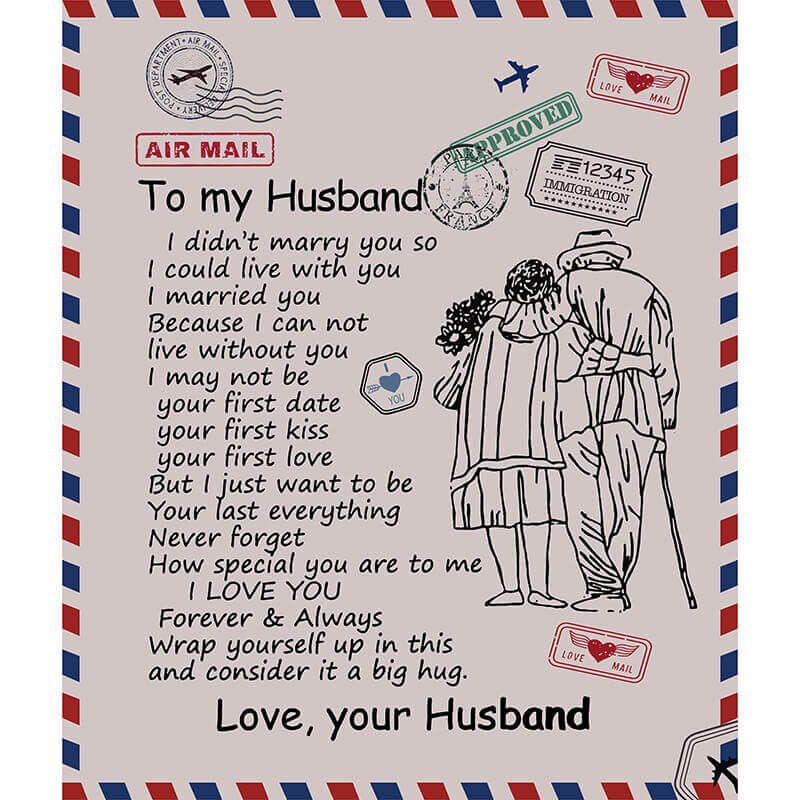 POST DEPARTMENT • AIR MAIL • SPECIAL DELIVERY •
LOVE MAIL
APPROVED
AIR MAIL
12345
IMMIGRATION
To my Husband
FRANCE
I didn't marry you so
I could live with you
I married you
Because I can not
live without you
I may not be
I
YOU
your first date
your first kiss
your first love
But I just want to be
Your last everything
Never forget
How special you are to me
I LOVE YOU
Forever & Always
Wrap yourself up in this
and consider it a big hug.
LOVE MAIL
Love, your Husband